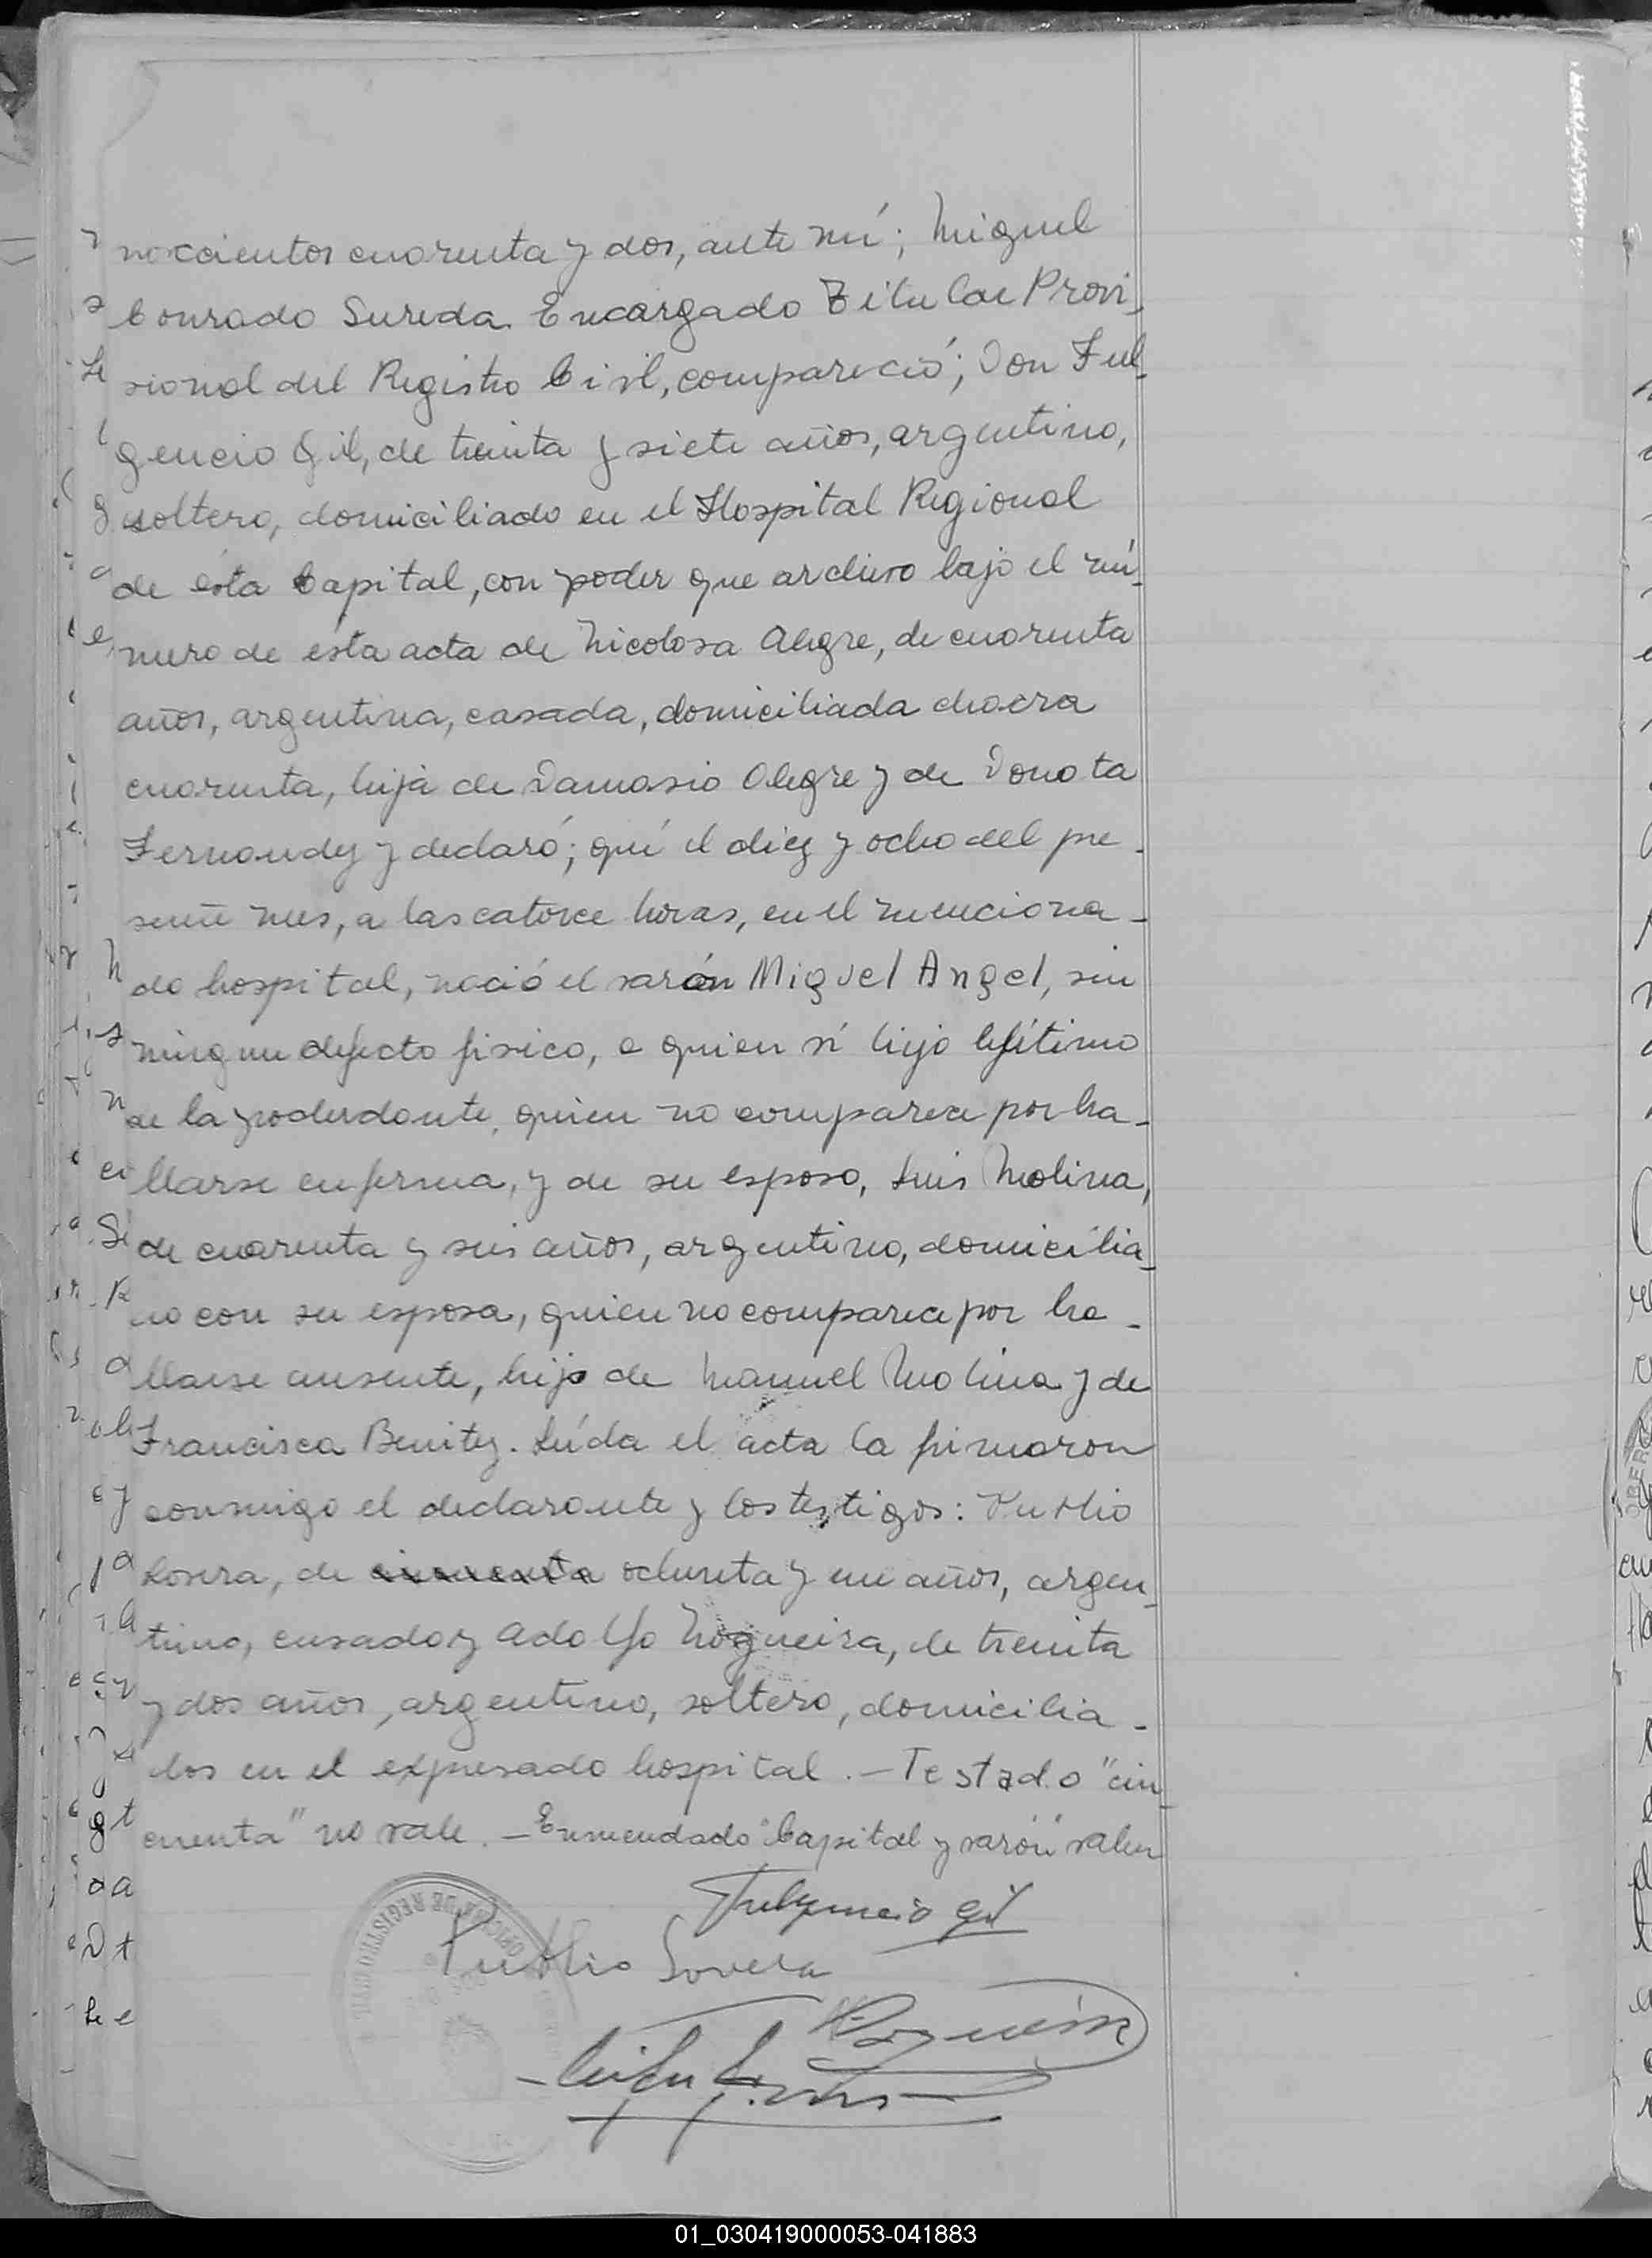 novecientos cuarenta y dos, ante mí; Miguel
Conrado Sureda Encargado Titular Provi-
sional del Registro Civil, compareció; Don Ful-
gencio Gil, de treinta y siete años, argentino,
soltero, domiciliado en el Hospital Regional
de ésta Capital, con poder que archivo bajo el nú-
mero de esta acta de Nicolasa Alegre, de cuarenta
años, argentina, casada, domiciliada chacra
cuarenta, hija de Damasio Alegre y de Donata
Fernandez y declaró; qué el diez y ocho del pre-
sente mes, a las catorce horas, en el menciona-
do hospital, nació el varón Miguel Angel, sin
ningun defecto fisico, a quien ví hijo lejítimo
de la poderdante, quien no comparece por ha-
llarse enferma, y de su esposo, Luis Molina,
de cuarenta y seis años, argentino, domicilia-
do con su esposa, quien no comparece por ha-
llarse ausente, hijo de Manuel Molina y de
Francisca Benitez. Leída el acta la firmaron
conmigo el declarante y los testigos: Publio
Lovera, de cincuenta ochenta y un años, argen-
tino, casado y Adolfo Nogueira, de treinta
y dos años, argentino, soltero, domicilia-
dos en el expresado hospital.- Testado "cin-
cuenta" no vale.- Enmendado "Capital y varón" valen
Fulgencio Gil
Publio Lovera
Nogueira
REGISTRO CIVIL
01_030419000053-041883